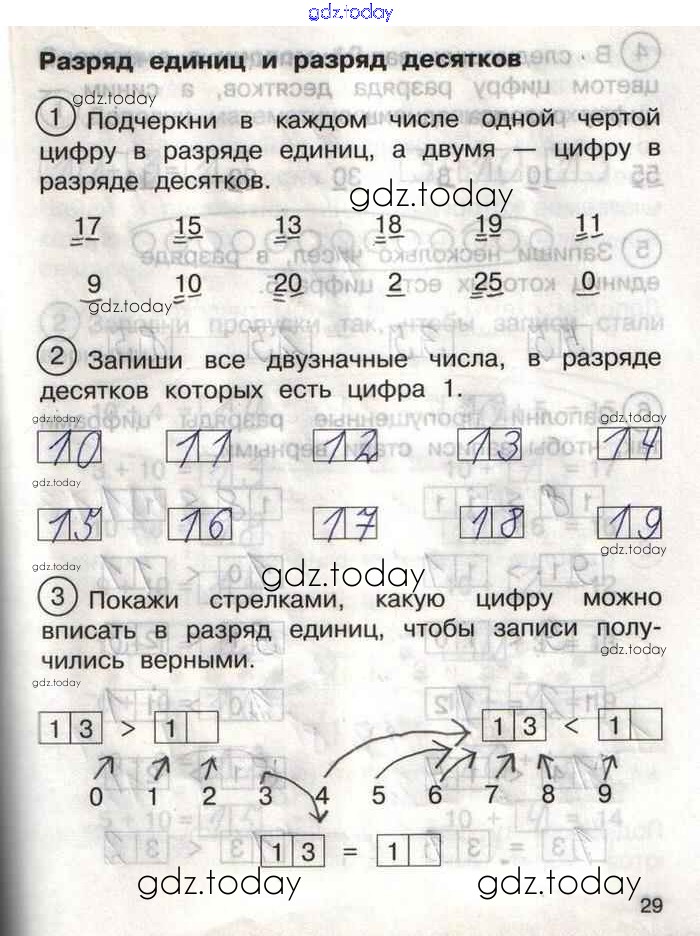 gdz.today
Разряд единиц и разряд десятков
gdz.today
1 Подчеркни в каждом числе одной чертой
цифру в разряде единиц, а двумя — цифру в
разряде десятков.
gdz.today
17 15 13 18 19 11
9 10 20 2 25 0
gdz.today
2 Запиши все двузначные числа, в разряде
десятков которых есть цифра 1.
gdz.today gdz.today
10 11 12 13 14
gdz.today gdz.today
15 16 17 18 19
gdz.today gdz.today
gdz.today
3 Покажи стрелками, какую цифру можно
вписать в разряд единиц, чтобы записи полу-
чились верными.
gdz.today
gdz.today
13 > 1 13 < 1
0 1 2 3 4 5 6 7 8 9
13 = 1
gdz.today gdz.today
29